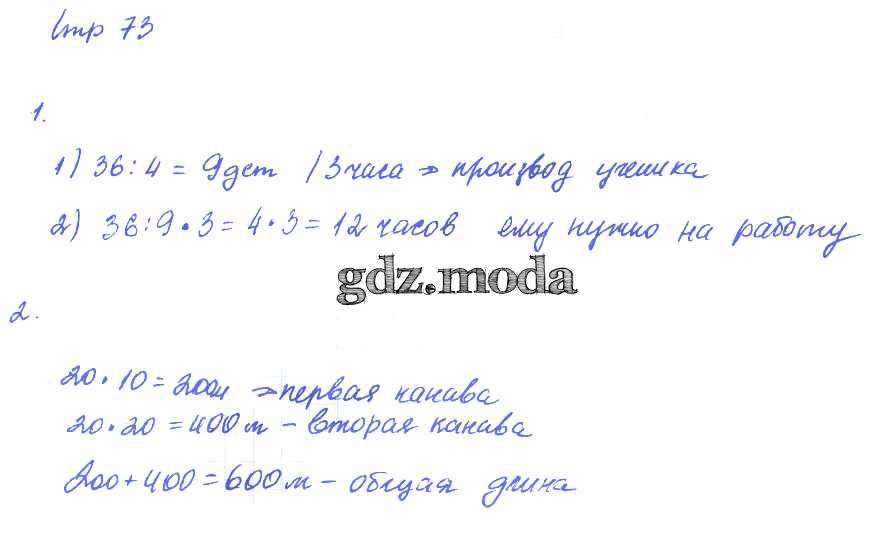 Стр 73
1.
1) 36:4 = 9 дет / 3 часа → производ ученика
2) 36:9·3 = 4·3 = 12 часов ему нужно на работу
gdz.moda
2.
20·10 = 200м → первая канава
20·20 = 400м – вторая канава
200+400 = 600м – общая длина